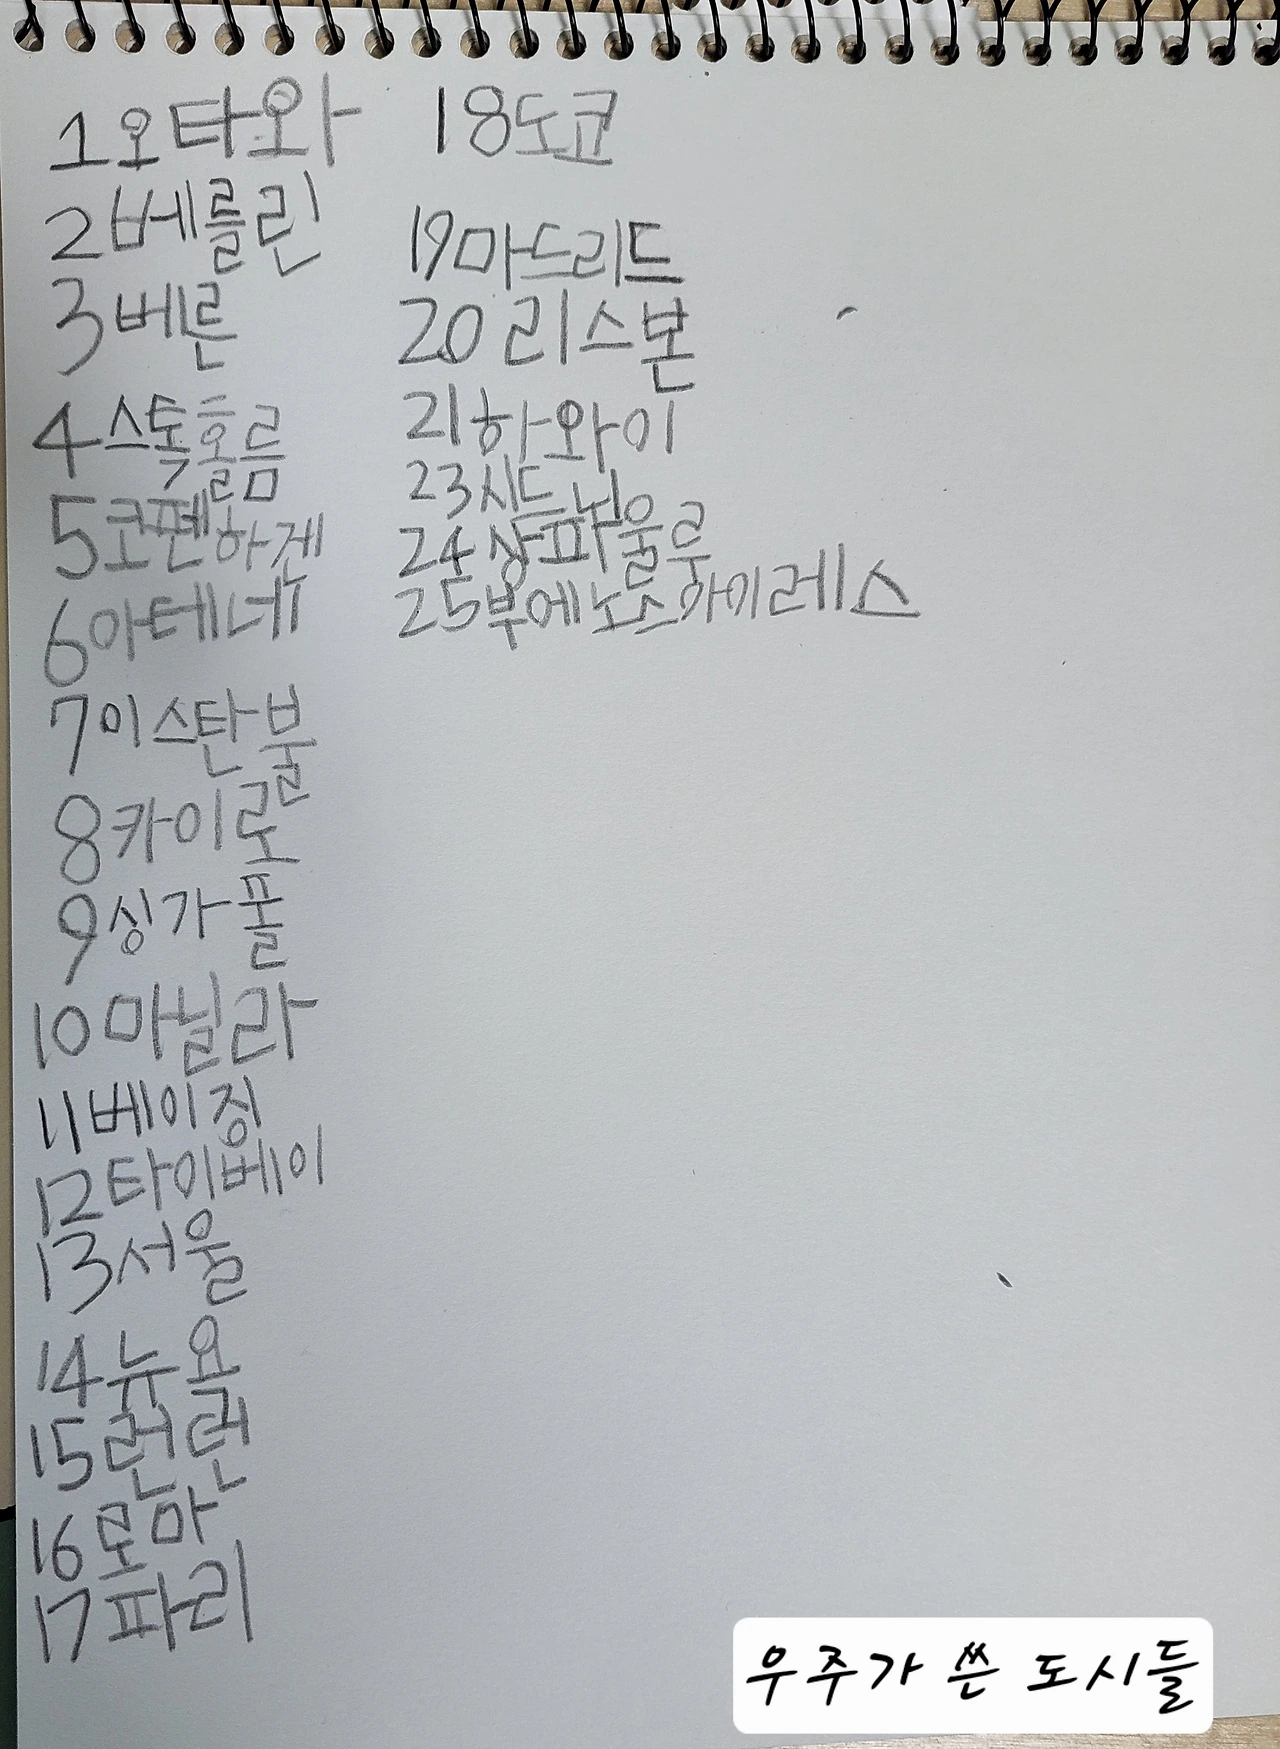 1오타와
2베를린
3베른
4스톡홀름
5코펜하겐
6아테네
7이스탄불
8카이로
9싱가폴
10마닐라
11베이징
12타이베이
13서울
14뉴욕
15런던
16로마
17파리
18도쿄
19마드리드
20리스본
21하와이
23시드니
24상파울루
25부에노스아이레스
우주가 쓴 도시들